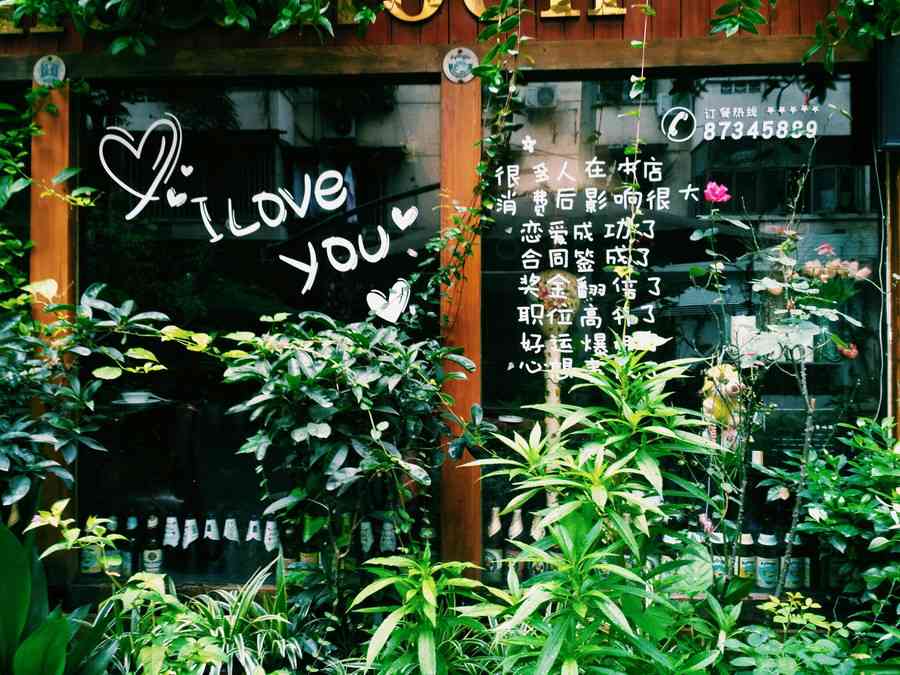 I LOVE
YOU
订餐热线
87345889
很多人在本店
消费后影响很大
恋爱成功了
合同签成了
奖金翻倍了
职位高升了
好运爆
心想